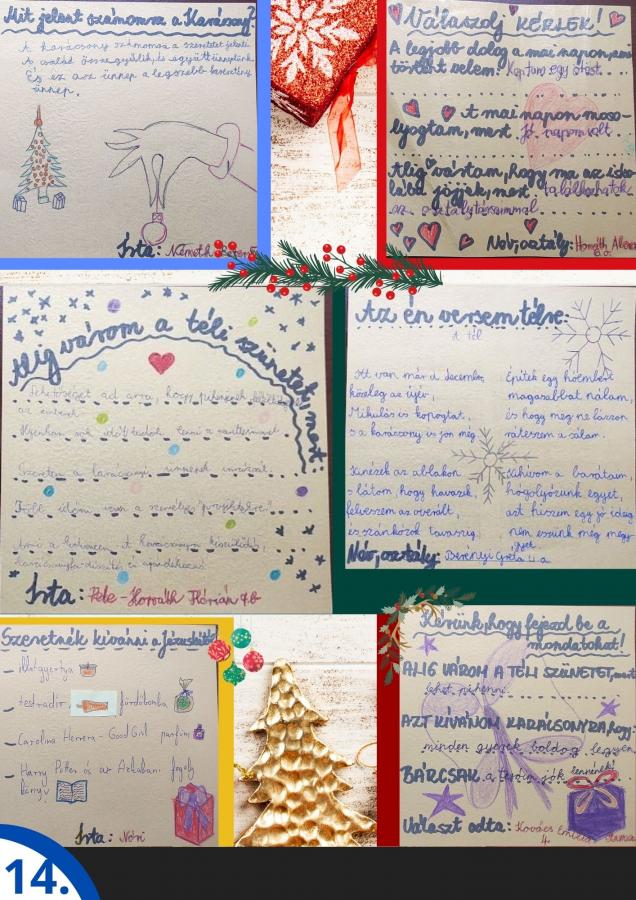 Mit jelent számomra a Karácsony?
A karácsony számomra a szeretetet jelenti.
A család összegyűlik, és együtt ünneplünk
És ez az ünnep a legszebb keresztény
ünnep.
Írta: Németh
Válaszolj KÉRLEK!
A legjobb dolog a mai napon, ami
történt velem: Kaptam egy ötöst.
A mai napon moso-
lyogtam, mert jó napom volt
Alig vártam, hogy ma az isko-
lába jöjjek, mert találkozhatok
az osztálytársaimmal
Név, osztály: Horváth
6.o.
Alig várom a téli szünetet, mert:
lehetőséget ad arra, hogy pihenjek
az
Ilyenkor sok időt tudok lenni a családommal
Szeretem a karácsonyi ünnepek
Több időm van a személyes "projektekre"
Ami a kedvencem: A karácsonyra készülődés,
karácsonyfa díszítés és ajándékozás.
Írta: Pete-Horváth Flórián 4.b
Az én versem télre:
A tél
Itt van már a december,
közeleg az újév,
Mikulás is kopogtat,
s a karácsony is jön még.
Kinézek az ablakon
s látom, hogy havazik,
felveszem az overált,
és szánkózok tavaszig.
Építek egy hóembert
magasabbat nálam,
és hogy meg ne fázzon
ráteszem a sálam.
Kihívom a barátaim,
hógolyózunk egyet,
azt hiszem egy jó ideig
nem eszünk meg mégy
Név, osztály: Berényi Gréta 4.a
Szeretnék kívánni a Jézuskától
– illatgyertya
– testradír, fürdőbomba
– Carolina Herrera - Good Girl parfüm
– Harry Potter és az Azkabani fogoly
könyv
Írta: Nóri
Kérünk, hogy fejezd be a
mondatokat!
ALIG VÁROM A TÉLI SZÜNETET, mert
lehet pihenni.
AZT KÍVÁNOM KARÁCSONYRA, hogy:
minden gyerek boldog legyen
BÁRCSAK a jók lennének!
Választ adta: Kovács
4.
14.